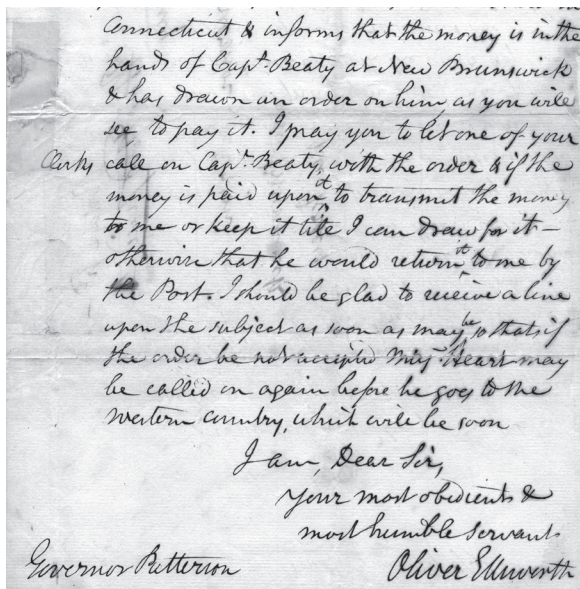 Connecticut & informs that the money is in the
hands of Capt. Beaty at New Brunswick
& has drawn an order on him, as you will
see to pay it. I pray you to let one of your
Clerks call on Capt. Beaty, with the order & if the
money is paid upon it to transmit the money
to me or keep it till I can draw for it –
otherwise that he would return it to me by
the Post. I should be glad to receive a line
upon the subject as soon as may be, so that if
the order be not accepted Maj. Heart may
be called on again before he goes to the
Western country, which will be soon
I am, Dear Sir,
your most obedient &
most humble servant
Governor Patterson Oliver Ellsworth